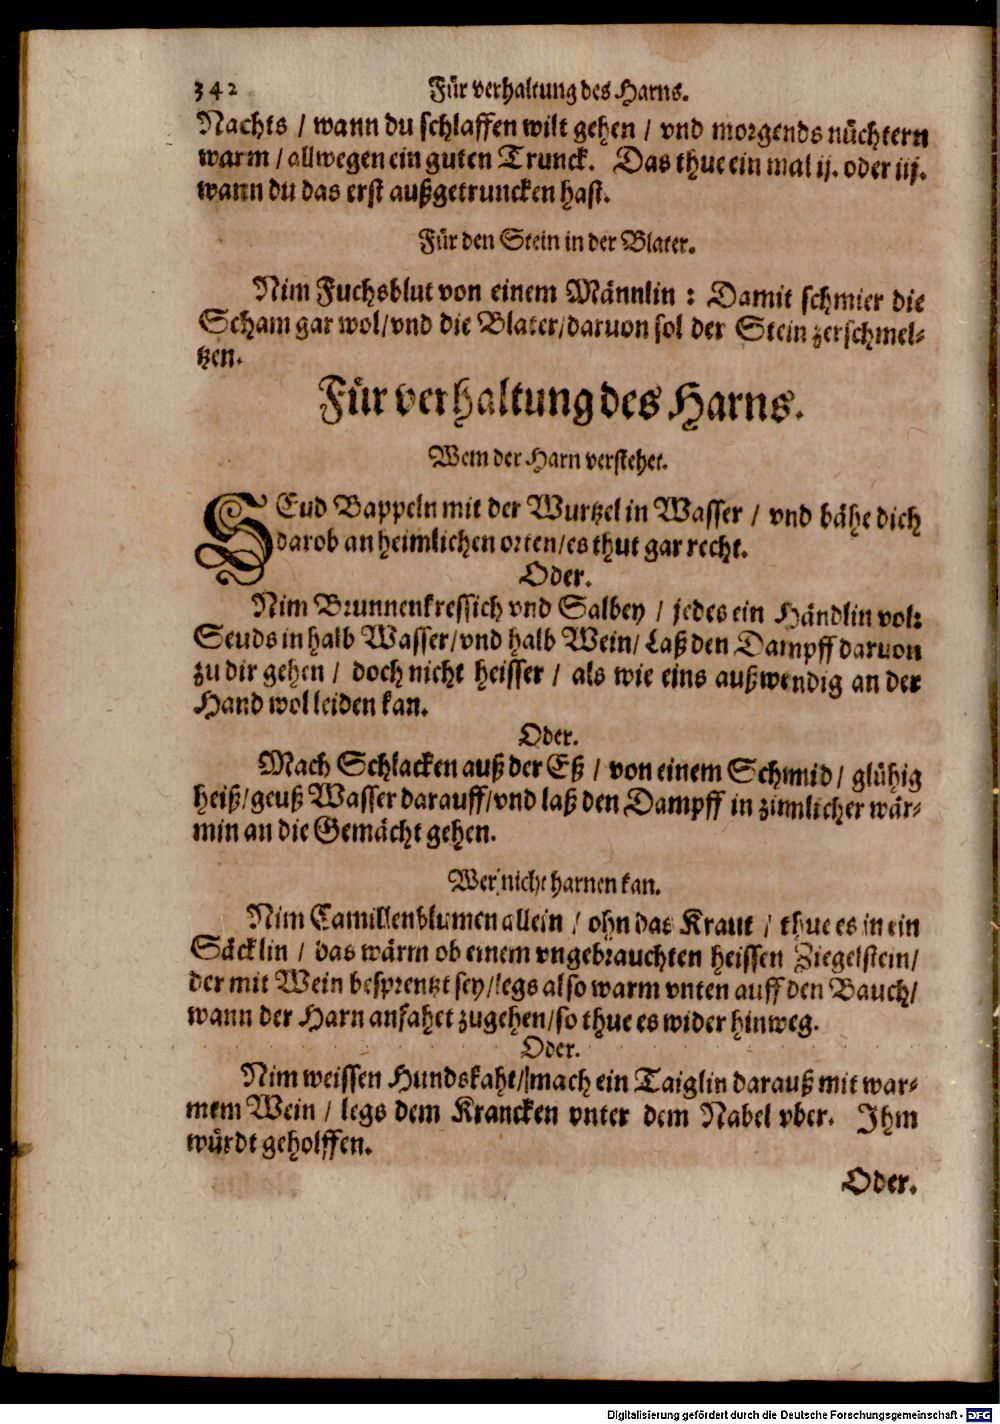 342 Für verhaltung des Harns.
Nachts / wann du schlaffen wilt gehen / vnd morgends nüchtern
warm / allwegen ein guten Trunck. Das thue ein mal ij. oder iij.
wann du das erst außgetruncken hast.
Für den Stein in der Blater.
Nim Fuchsblut von einem Männlin : Damit schmier die
Scham gar wol/vnd die Blater/daruon sol der Stein zerschmel-
tzen.
Für verhaltung des Harns.
Wem der Harn verstehet.
SEud Bappeln mit der Wurtzel in Wasser / vnd bähe dich
darob an heimlichen orten/es thut gar recht.
Oder.
Nim Brunnenkressich vnd Salbey / jedes ein Händlin vol:
Seuds in halb Wasser/vnd halb Wein/ Laß den Dampff daruon
zu dir gehen / doch nicht heisser / als wie eins außwendig an der
Hand wol leiden kan.
Oder.
Mach Schlacken auß der Eß / von einem Schmid / glühig
heiß/geuß Wasser darauff/vnd laß den Dampff in zimlicher wär-
min an die Gemächt gehen.
Wer nicht harnen kan.
Nim Camillenblumen allein / ohn das Kraut / thue es in ein
Säcklin / das wärm ob einem vngebrauchten heissen Ziegelstein/
der mit Wein besprentzt sey/legs also warm vnten auff den Bauch/
wann der Harn anfahet zugehen/so thue es wider hinweg.
Oder.
Nim weissen Hundskaht/mach ein Taiglin darauß mit war-
mem Wein / legs dem Krancken vnter dem Nabel vber. Ihm
würdt geholffen.
Oder.
Digitalisierung gefördert durch die Deutsche Forschungsgemeinschaft - DFG